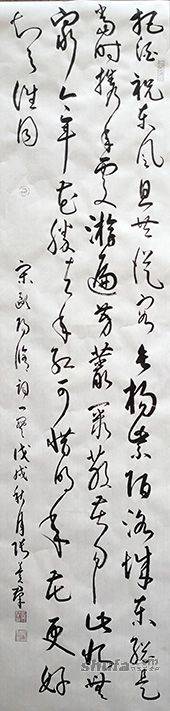 把酒祝东风且共從容垂楊紫陌洛城东總是
當时携手處游遍芳叢聚散苦匆匆此恨無
窮今年花勝去年红可惜明年花更好
知与谁同
宋欧阳修词一戊戌秋月张